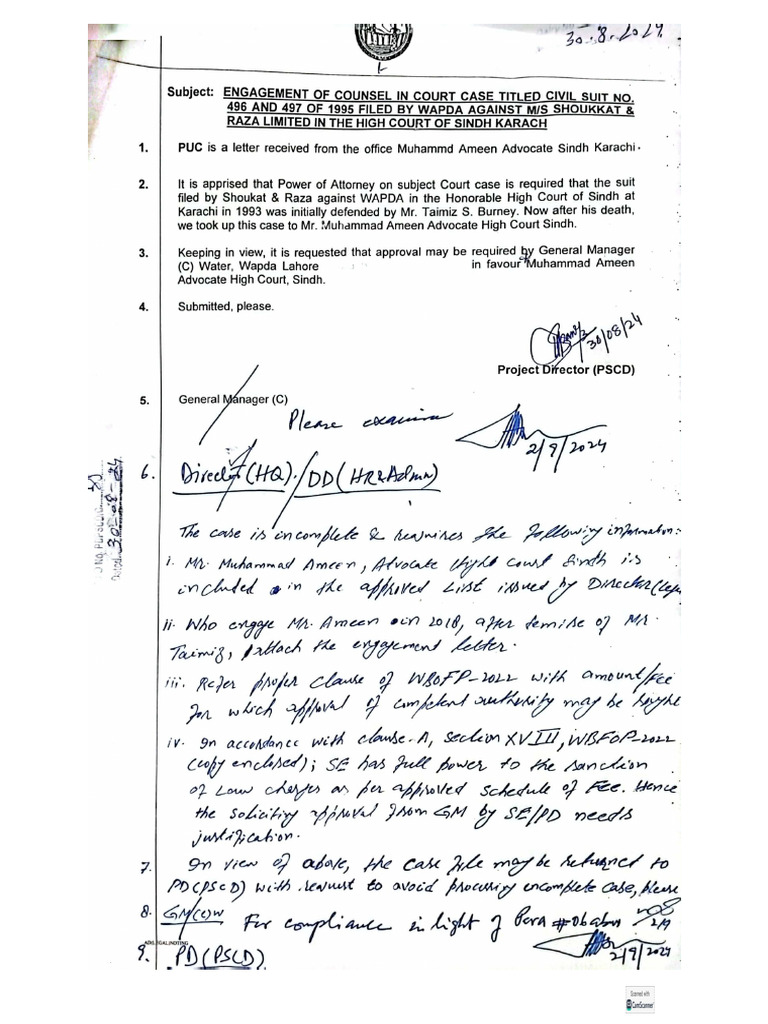 30.8.2024
Subject: ENGAGEMENT OF COUNSEL IN COURT CASE TITLED CIVIL SUIT NO.
496 AND 497 OF 1995 FILED BY WAPDA AGAINST M/S SHOUKKAT &
RAZA LIMITED IN THE HIGH COURT OF SINDH KARACH
1. PUC is a letter received from the office Muhammd Ameen Advocate Sindh Karachi.
2. It is apprised that Power of Attorney on subject Court case is required that the suit
filed by Shoukat & Raza against WAPDA in the Honorable High Court of Sindh at
Karachi in 1993 was initially defended by Mr. Taimiz S. Burney. Now after his death,
we took up this case to Mr. Muhammad Ameen Advocate High Court Sindh.
3. Keeping in view, it is requested that approval may be required by General Manager
(C) Water, Wapda Lahore in favour Muhammad Ameen
Advocate High Court, Sindh.
4. Submitted, please.
30/08/24
Project Director (PSCD)
5. General Manager (C)
Please examine
2/9/2024
6. Director (HQ)./DD(HR&Admn)
The case is incomplete & requires the following information:
i. Mr. Muhammad Ameen, Advocate High Court Sindh is
included in the approved List issued by Director
ii. Who engage Mr. Ameen in 2018, after demise of Mr.
Taimiz, attach the engagement letter.
iii. Refer proper clause of WBOFP-2022 with amount/Fee
for which approval of competent authority may be
iv. In accordance with clause-A, section XVIII, WBFOP-2022
(copy enclosed); SE has full power to the sanction
of Law charges as per approved schedule of Fee. Hence
the soliciting approval from GM by SE/PD needs
justification.
7. In view of above, the case file may be returned to
PD(PSCD) with request to avoid procuring incomplete case, please
8. GM(C)W For compliance in light of Para #06 above
2/9
9. PD(PSCD)
2/9/2024
Scanned with
CamScanner